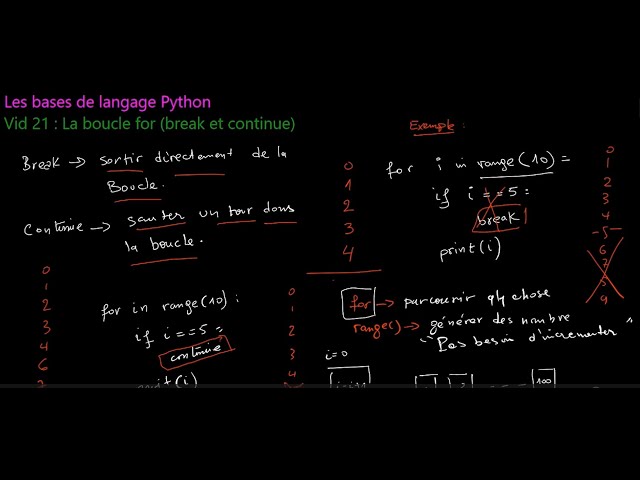 Les bases de langage Python
Vid 21 : La boucle for (break et continue)
Break → sortir directement de la
Boucle.
Continue → sauter un tour dans
la boucle.
0
1
2
3
4
6
for in range(10) :
if i == 5 :
continue
print(i)
0
1
2
3
4
Exemple :
0
1
2
3
4
for i in range(10) =
if i == 5 :
break
print(i)
0
1
2
3
4
5
6
7
8
9
for → parcourir qlq chose
range() → générer des nombre
"Pas besoin d'incrementer"
i=0
i=i+1
100